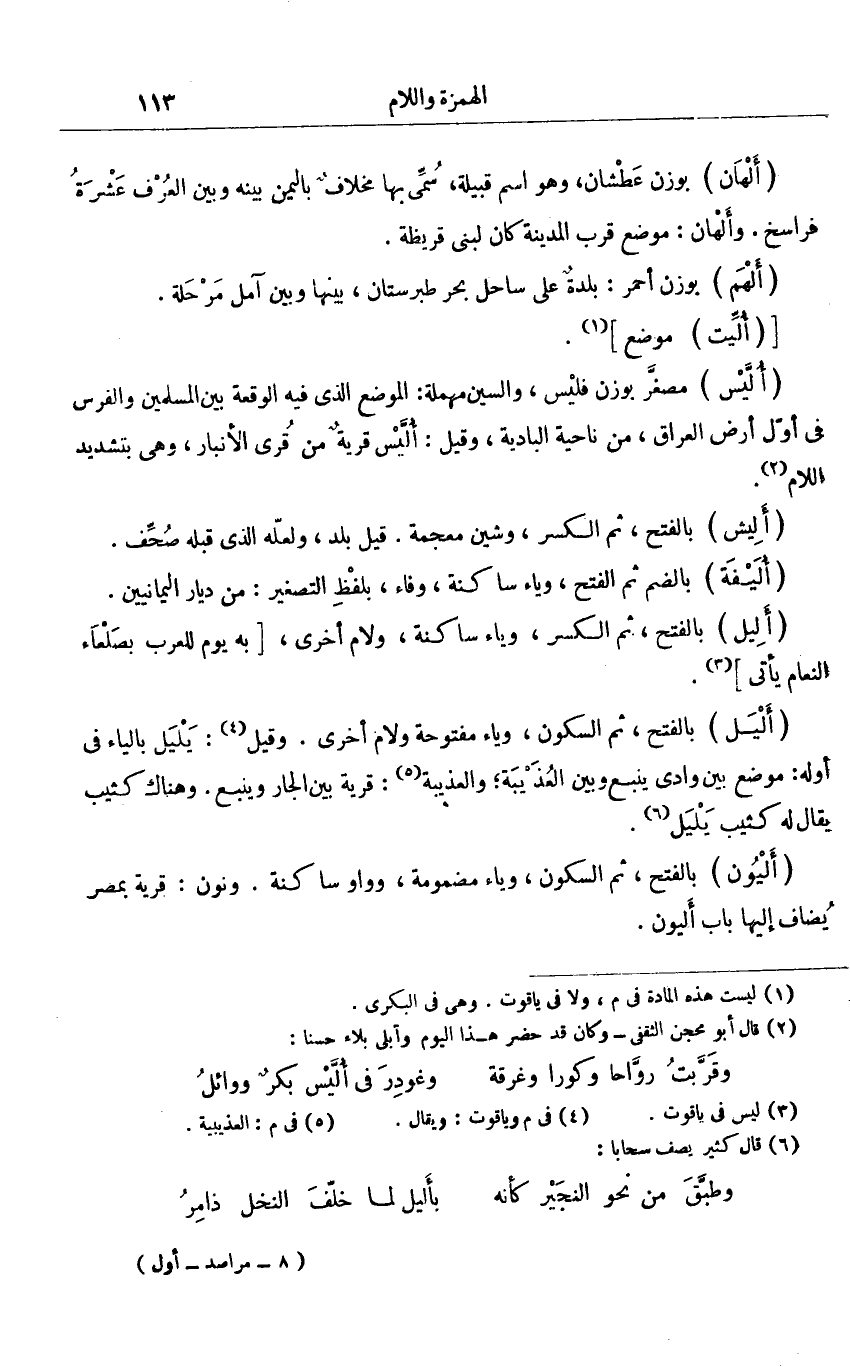 الهمزة واللام ١١٣
( أَلْهَان ) بوزن عَطْشان، وهو اسم قبيلة، سُمِّى بها مخلافٌ باليمن بينه وبين العُرْف عَشْرَةُ
فراسخ . وأَلْهان : موضع قرب المدينة كان لبنى قريظة .
( أَلْهَم ) بوزن أحمر : بلدةٌ على ساحل بحر طبرستان ، بينها وبين آمل مَرْحَلة .
[ ( أُلِّيت ) موضع ](١) .
( أُلَّيْس ) مصغَّر بوزن فليْس ، والسين مهملة: الموضع الذى فيه الوقعة بين المسلمين والفرس
فى أوّل أرض العراق ، من ناحية البادية ، وقيل : أُلَّيْس قريةٌ من قُرى الأنبار ، وهى بتشديد
اللام(٢).
( أَلِيش ) بالفتح ، ثم الكسر ، وشين معجمة . قيل بلد ، ولعلّه الذى قبله صُحِّف .
( أُلَيْفَة ) بالضم ثم الفتح ، وياء ساكنة ، وفاء ، بلفْظِ التصغير : من ديار اليمانيين .
( أَلِيل ) بالفتح ، ثم الكسر ، وياء ساكنة ، ولام أخرى ، [ به يوم للعرب بصَلْعَاء
النعام يأتى ](٣) .
( أَلْيَل ) بالفتح ، ثم السكون ، وياء مفتوحة ولام أخرى . وقيل(٤) : يَلْيَل بالياء فى
أوله: موضع بين وادى ينبع وبين العُذَيْبَة؛ والعذيبة(٥) : قرية بين الجار وينبع . وهناك كثيب
يقال له كثيب يَلْيَل(٦) .
( أَلْيُون ) بالفتح ، ثم السكون ، وياء مضمومة ، وواو ساكنة . ونون : قرية بمصر
يُضاف إليها باب أَليون .
(١) ليست هذه المادة فى م ، ولا فى ياقوت . وهى فى البكرى .
(٢) قال أبو محجن الثقفى ــ وكان قد حضر هــذا اليوم وأبلى بلاء حسنا :
وقَرَّبتُ روَّاحا وكورا وغرقة وغودِرَ فى أُلَّيْس بكرٌ ووائلُ
(٣) ليس فى ياقوت . (٤) فى م وياقوت : ويقال . (٥) فى م : العذيبية .
(٦) قال كثير يصف سحابا :
وطبَّقَ من نحو النجَيْر كأنه بأَليل لمـا خلّفَ النخل ذامِرُ
( ٨ ــ مراصد ــ أول )